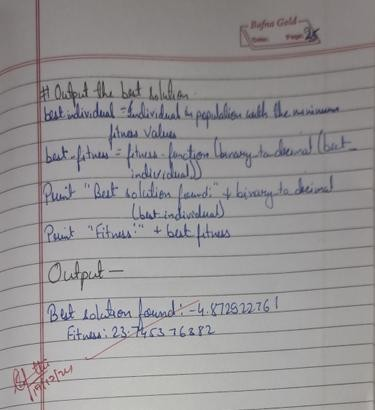 Bafna Gold
Date: Page: 25
# Output the best solution
best individual = Individual in population with the minimum
fitness values
best-fitness = fitness-function (binary-to-decimal (best-
individual))
Print "Best solution found:" + binary-to decimal
(best individual)
Print "Fitness:" + best fitness
Output -
Best solution found: -4.872922761
Fitness: 23.745376382